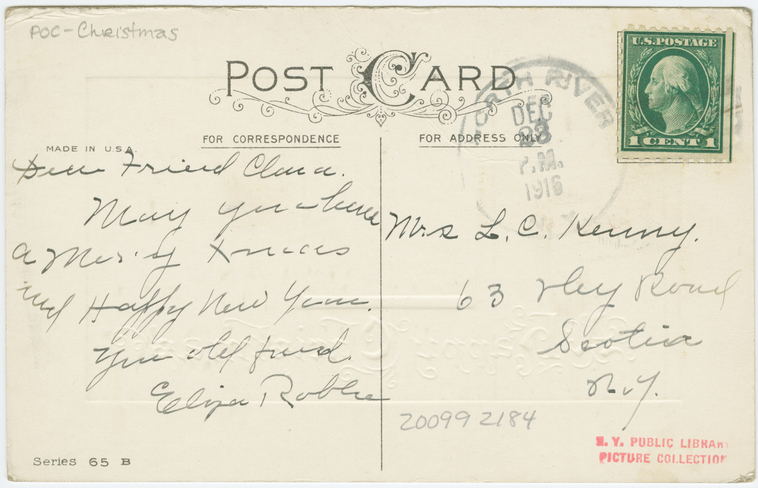 POC-Christmas
POST CARD
U.S. POSTAGE
1 CENT 1
RTH RIVER
DEC
23
P.M.
1916
MADE IN U.S.A.
FOR CORRESPONDENCE
FOR ADDRESS ONLY
Dear Friend Clara.
May you have
a Merry Xmas
and Happy New Year.
Your old friend
Eliza
Mrs L. C. Kenny.
63 Vley Road
Scotia
N.Y.
20099 2184
N. Y. PUBLIC LIBRARY
PICTURE COLLECTION
Series 65 B